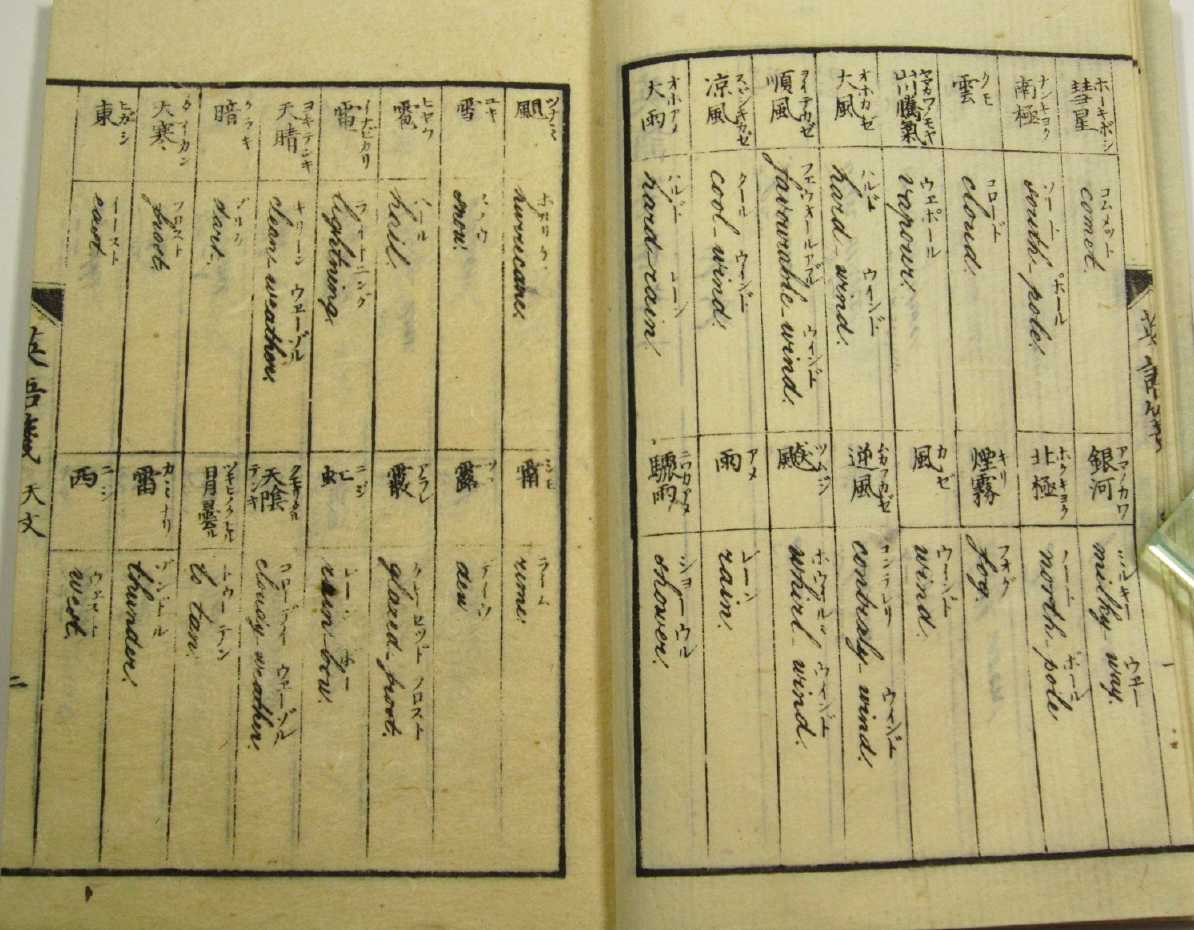 彗星 ホーキボシ
comet. コムメット
銀河 アマノカワ
milky way. ミルキー ウエー
南極 ナンキョク
south-pole. ソート ポール
北極 ホクキヨク
north-pole ノート ポール
雲 クモ
cloud. コロード
煙霧 キリ
fog. フオグ
山川騰氣
vapour. ウエポール
風 カゼ
wind. ウイント
大風 オホカゼ
hard-wind. ハルド ウインド
逆風 ムカフカゼ
contraly-wind. コンテレリ ウインド
順風 ヲイテカゼ
favourable-wind. フエウオールアブル ウインド
颷 ツムジ
whirl-wind. ホウワルル ウインド
凉風 スヾシキカゼ
cool-wind. クール ウインド
雨 アメ
rain. レーン
大雨 オホアメ
hard-rain. ハルド レーン
驟雨 ニワカアメ
shower. ショーウル
英語箋
一
颶 ツナミ
hurricane.
霜 シモ
rime. ライム
雪 ユキ
snow. スノウ
露 ツユ
dew デーウ
雹 ヒヤウ
hail. ヘール
霰 アラレ
glazed-froot.
電 イナヒカリ
lightning. ライトニング
虹 ニジ
rain-bow. レーン ボー
天晴 ヨキテンキ
clean-weather. キリーン ウエーゾル
天陰 クモリタル テンキ
cloudy weather. コローデイ ウエーゾル
暗 クラキ
dark. ダルク
to tan. トウー テン
大寒 タイカン
froot. フロスト
雷 カミナリ
thunder. ゾンドル
東 ヒガシ
east. イースト
西 ニシ
west. ウエスト
英語箋 天文
二